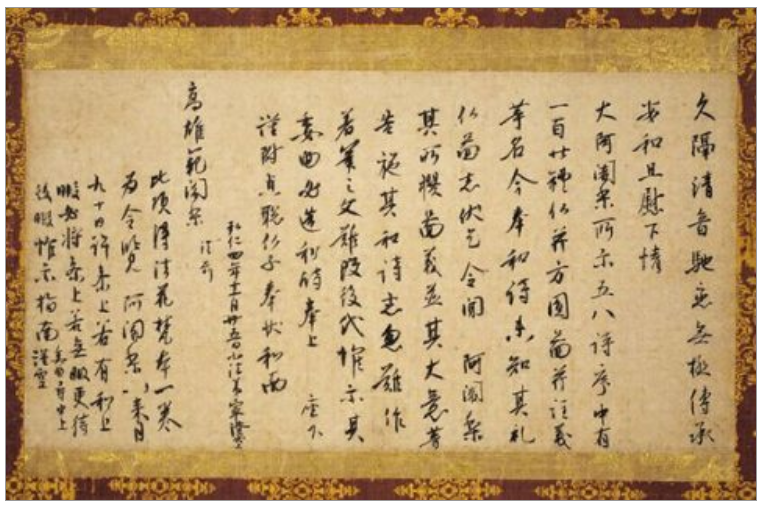 久隔清音馳恋無極傳承
安和且慰下情
大阿闍梨所示五八詩序中有
一百廿禮仏并方圓圖并註義
等名今奉和詩未知其礼
仏圖者伏乞令聞 阿闍梨
其所撰圖義並其大意等
告施其和詩者忽難作
著筆之文難改後代惟示其
委曲必造和詩奉上 座下
謹附貞聡仏子奉状和南
弘仁四年十一月廿五日小法弟最澄
高雄範闍梨 法前
此頃得法花梵本一巻
為令覧 阿闍梨以来月
九十日許参上若有和上
暇必将参上若無暇更待
後暇惟示指南謹空